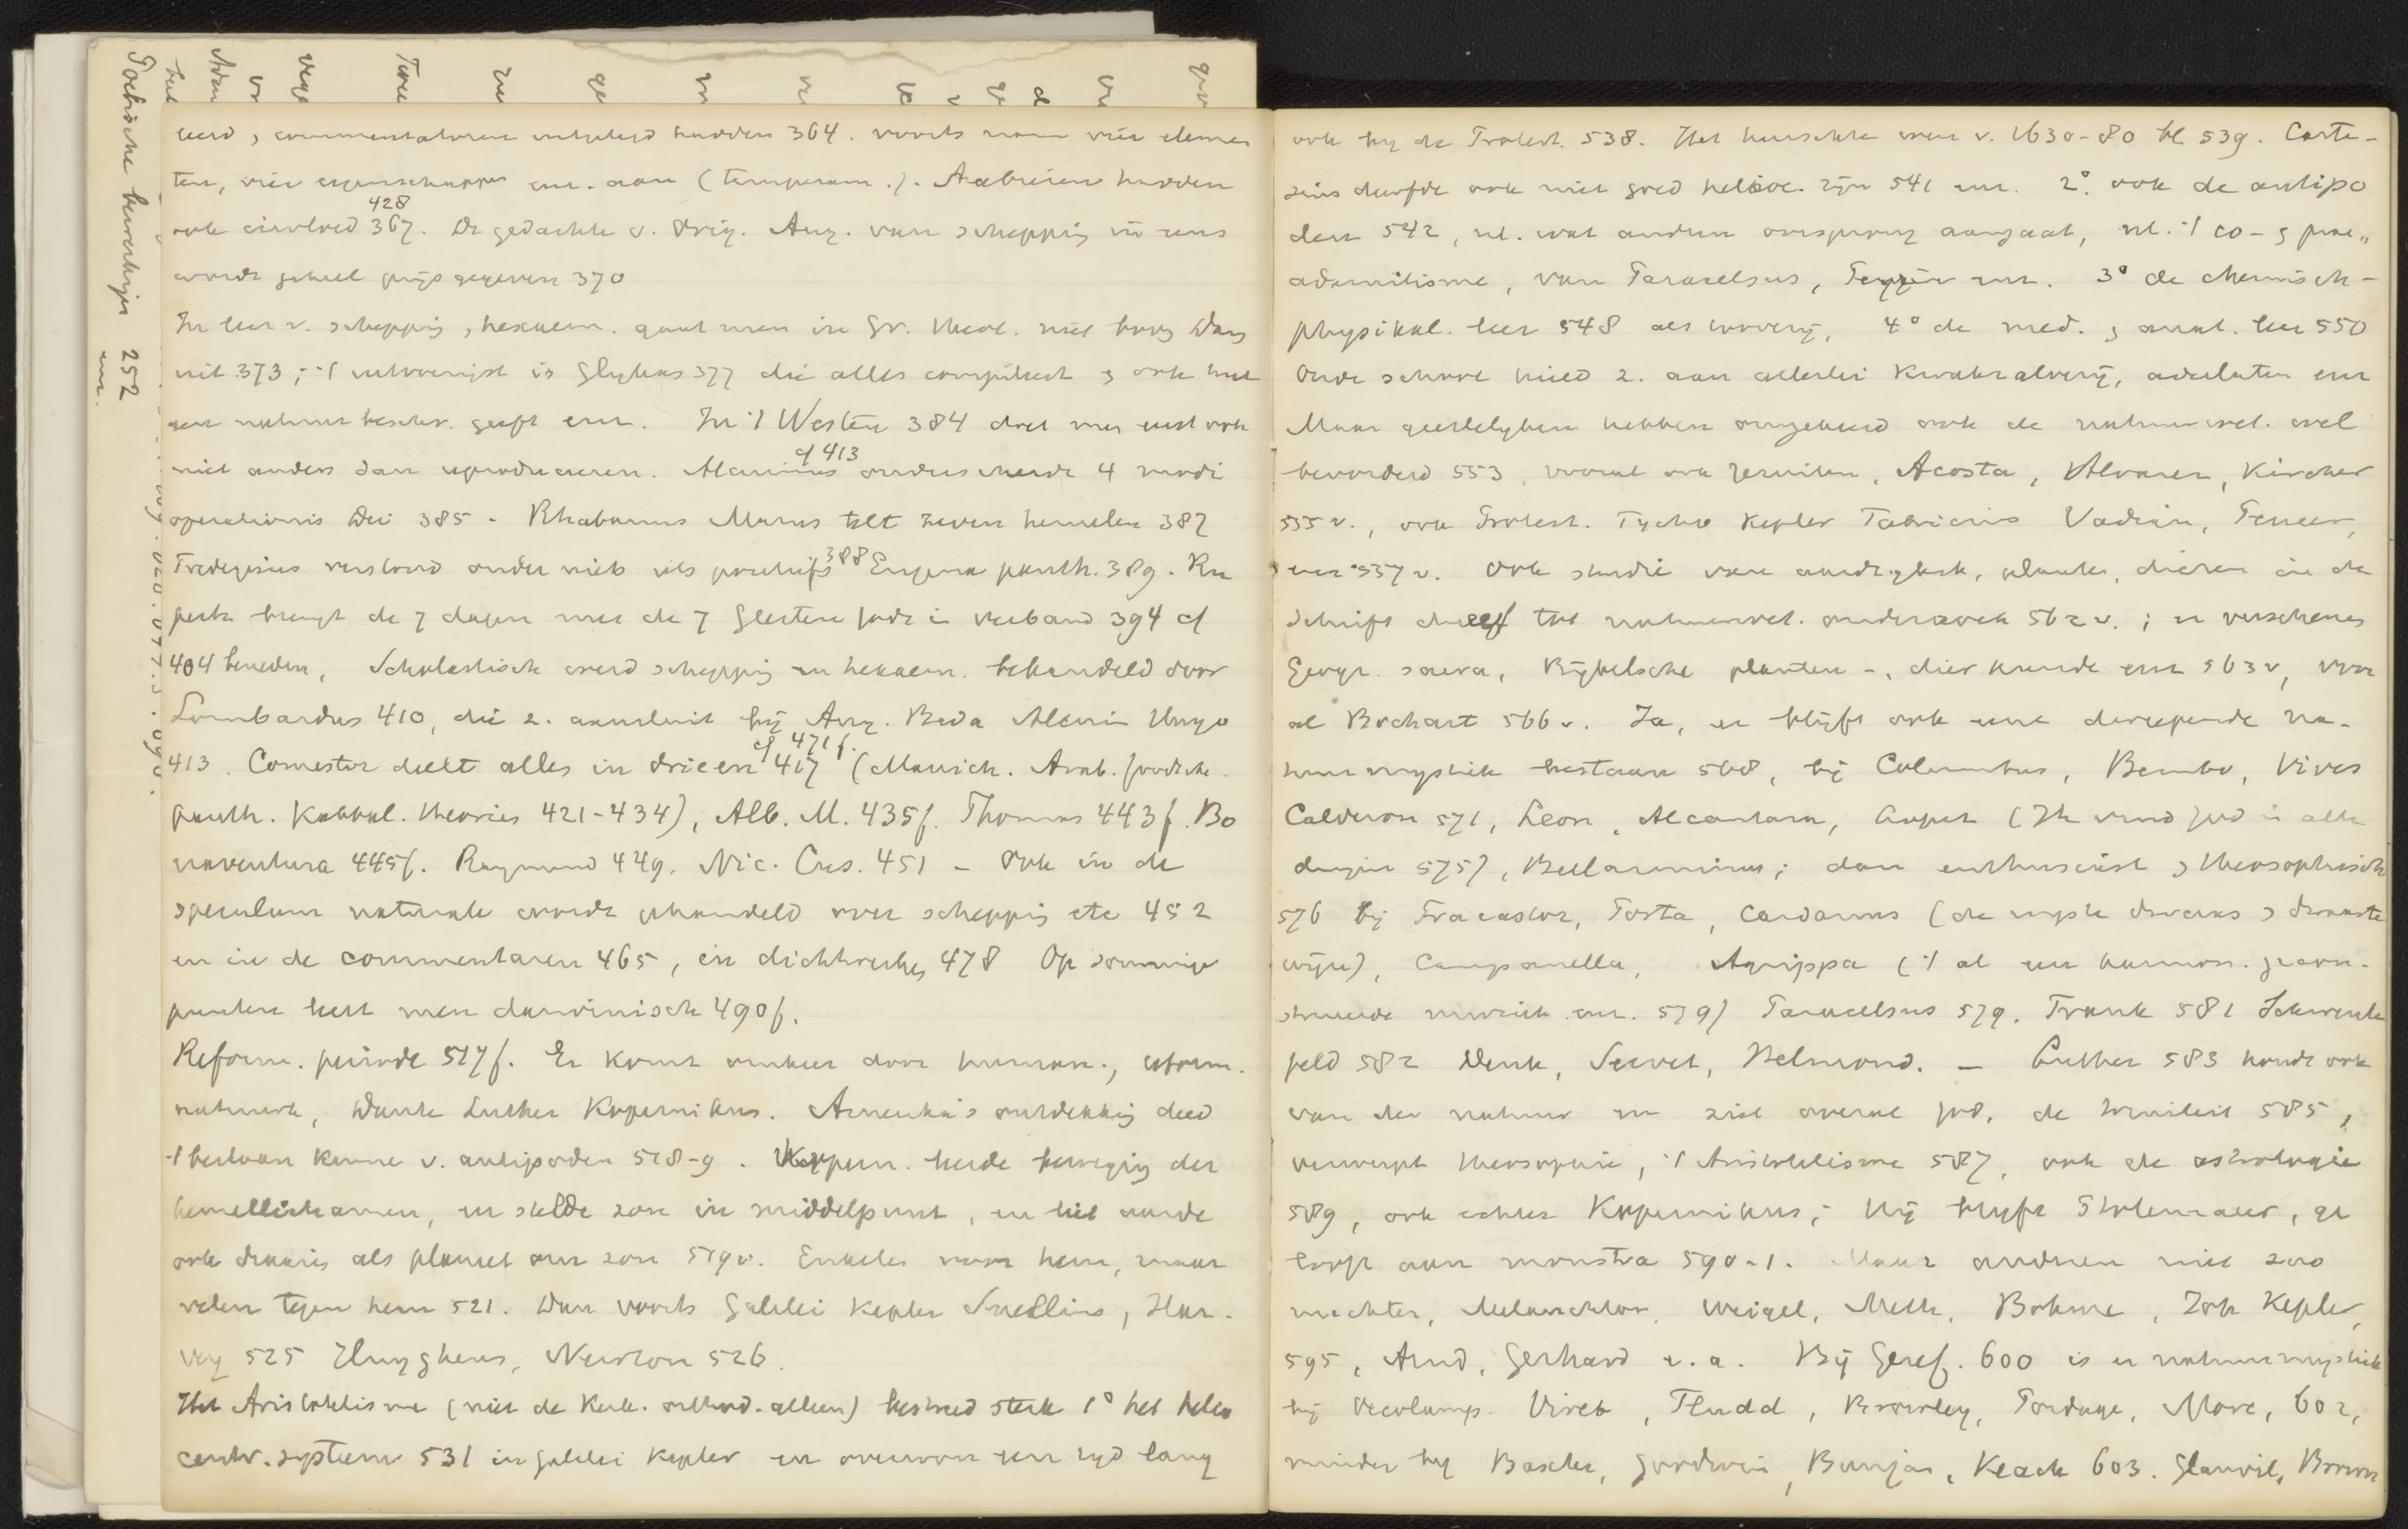 leerd, commentatoren uitgelegd hadden 364. voorts nam vier elemen
ten, vier eigenschappen enz. aan (temperam.). Arabieren hadden
428
ook invloed 367. De gedachte v. Orig. Aug. van schepping in eens
wordt geheel prijs gegeven 370
In leer v. schepping, hexaem. gaat men in Gr. theol. niet boven Dam
uit 373; 't uitvoerigst is Glykas 377 die alles compileert en ook met
een natuur beschr. geeft enz. In 't Westen 384 doet men eerst ook
cf 413
niet anders dan reproduceeren. Alcuinus onderscheidt 4 modi
operationis Dei 385 - Rhabanus Maurus telt zeven hemelen 387
Fredegisus verstond onder niets iets positiefs 388 Erigena panth. 389. Ru
perts brengt de 7 dagen met de 7 Geesten Gods in verband 394 cf
404 beneden, Scholastisch werd schepping en hexaem. behandeld door
Lombardus 410, die z. aansluit bij Aug. Beda Alcuin Hugo
cf 471 f.
413. Comestor deelt alles in drieen 417 (Manich. Arab. Joodsche
panth. Kabbal. theories 421-434), Alb. M. 435f. Thomas 443f. Bo
naventura 445f. Raymund 449. Nic. Cus. 451 - Ook in de
speculum naturale wordt gehandeld over schepping etc 452
en in de commentaren 465, en dichtwerken 478 Op sommige
punten leert men darwinisch 490f.
Reform. periode 517f. Er komt omkeer door human., reform.
natuurk, Dank Luther Kopernikus. Amerika's ontdekking deed
't bestaan kennen v. antipoden 518-9. Kopern. leerde beweging der
hemellichamen, en stelde zon in middelpunt, en liet aarde
ook draaien als planeet om zon 519v. Enkelen voor hem, maar
velen tegen hem 521. Dan voorts Galilei Kepler Snellius, Har-
vey 525 Huyghens, Newton 526.
Het Aristotelisme (niet de Kerk. orthod. alleen) bestreed sterk 1° het helio
centr. systeem 531 in Galilei Kepler en overwon een tijd lang
Poëtische bewerkingen 252
enz.
ook bij de Protest. 538. Het heerschte weer v. 1630-80 bl 539. Carte-
sius durfde ook niet goed helioc. zijn 541 enz. 2°. ook de antipo
den 542, nl. wat andren oorsprong aangaat, nl. 't co- en prae„
adamitisme, van Paracelsus, Peyrère enz. 3° de chemisch-
physikal. leer 548 als toovery, 4° de med. en anat. leer 550
Oude school hield z. aan allerlei kwakzalverij, amuletten enz
Maar geestelijken hebben omgekeerd ook de natuurwet. wel
bevorderd 553, vooral ook Jezuiten, Acosta, Alvarez, Kircher
555 v., ook Protest. Tycho Kepler Fabricius Vadian, Peucer,
enz 557 v. Ook studie van aardrijksk, planten, dieren in de
Schrift dreef tot natuurwet. onderzoek 562 v.; er verschenen
Geogr. sacra, Bijbelsche planten -, dierkunde enz 563 v, voor
al Bochart 566 v. Ja, er blijft ook eene diepgaande na-
tuurmystiek bestaan 568, bij Columbus, Bembo, Vives
Calderon 571, Leon, Alcantara, (Ik vind God in alle
dingen 575), Bellarminus; dan enthusiast en theosophisch
576 bij Fracastor, Porta, Cardanus
wijn), Campanella, Agrippa ('t al een harmon.
579) Paracelsus 579. Frank 581 Schwenk
feld 582 Denk, Servet, Helmond. — Luther 583 houdt ook
van de natuur en ziet overal God, de triniteit 585,
verwerpt theosophie, 't Aristotelisme 587, ook de astrologie
589, ook echter Kopernikus; hij blijft Ptolemaeer, ge
looft aan monstra 590-1. Maar andren niet zoo
nuchter, Melanchton, Weigel, Meth, Bohme, Joh Kepler,
595, Arnd, Gerhard e.a. Bij Geref. 600 is er natuurmystiek
bij Oecolamp. Viret, Fludd, Bromley, Pordage, More, 602,
minder bij Baxter, Goodwin, Bunjan, Keach 603. Glanvil, Brown